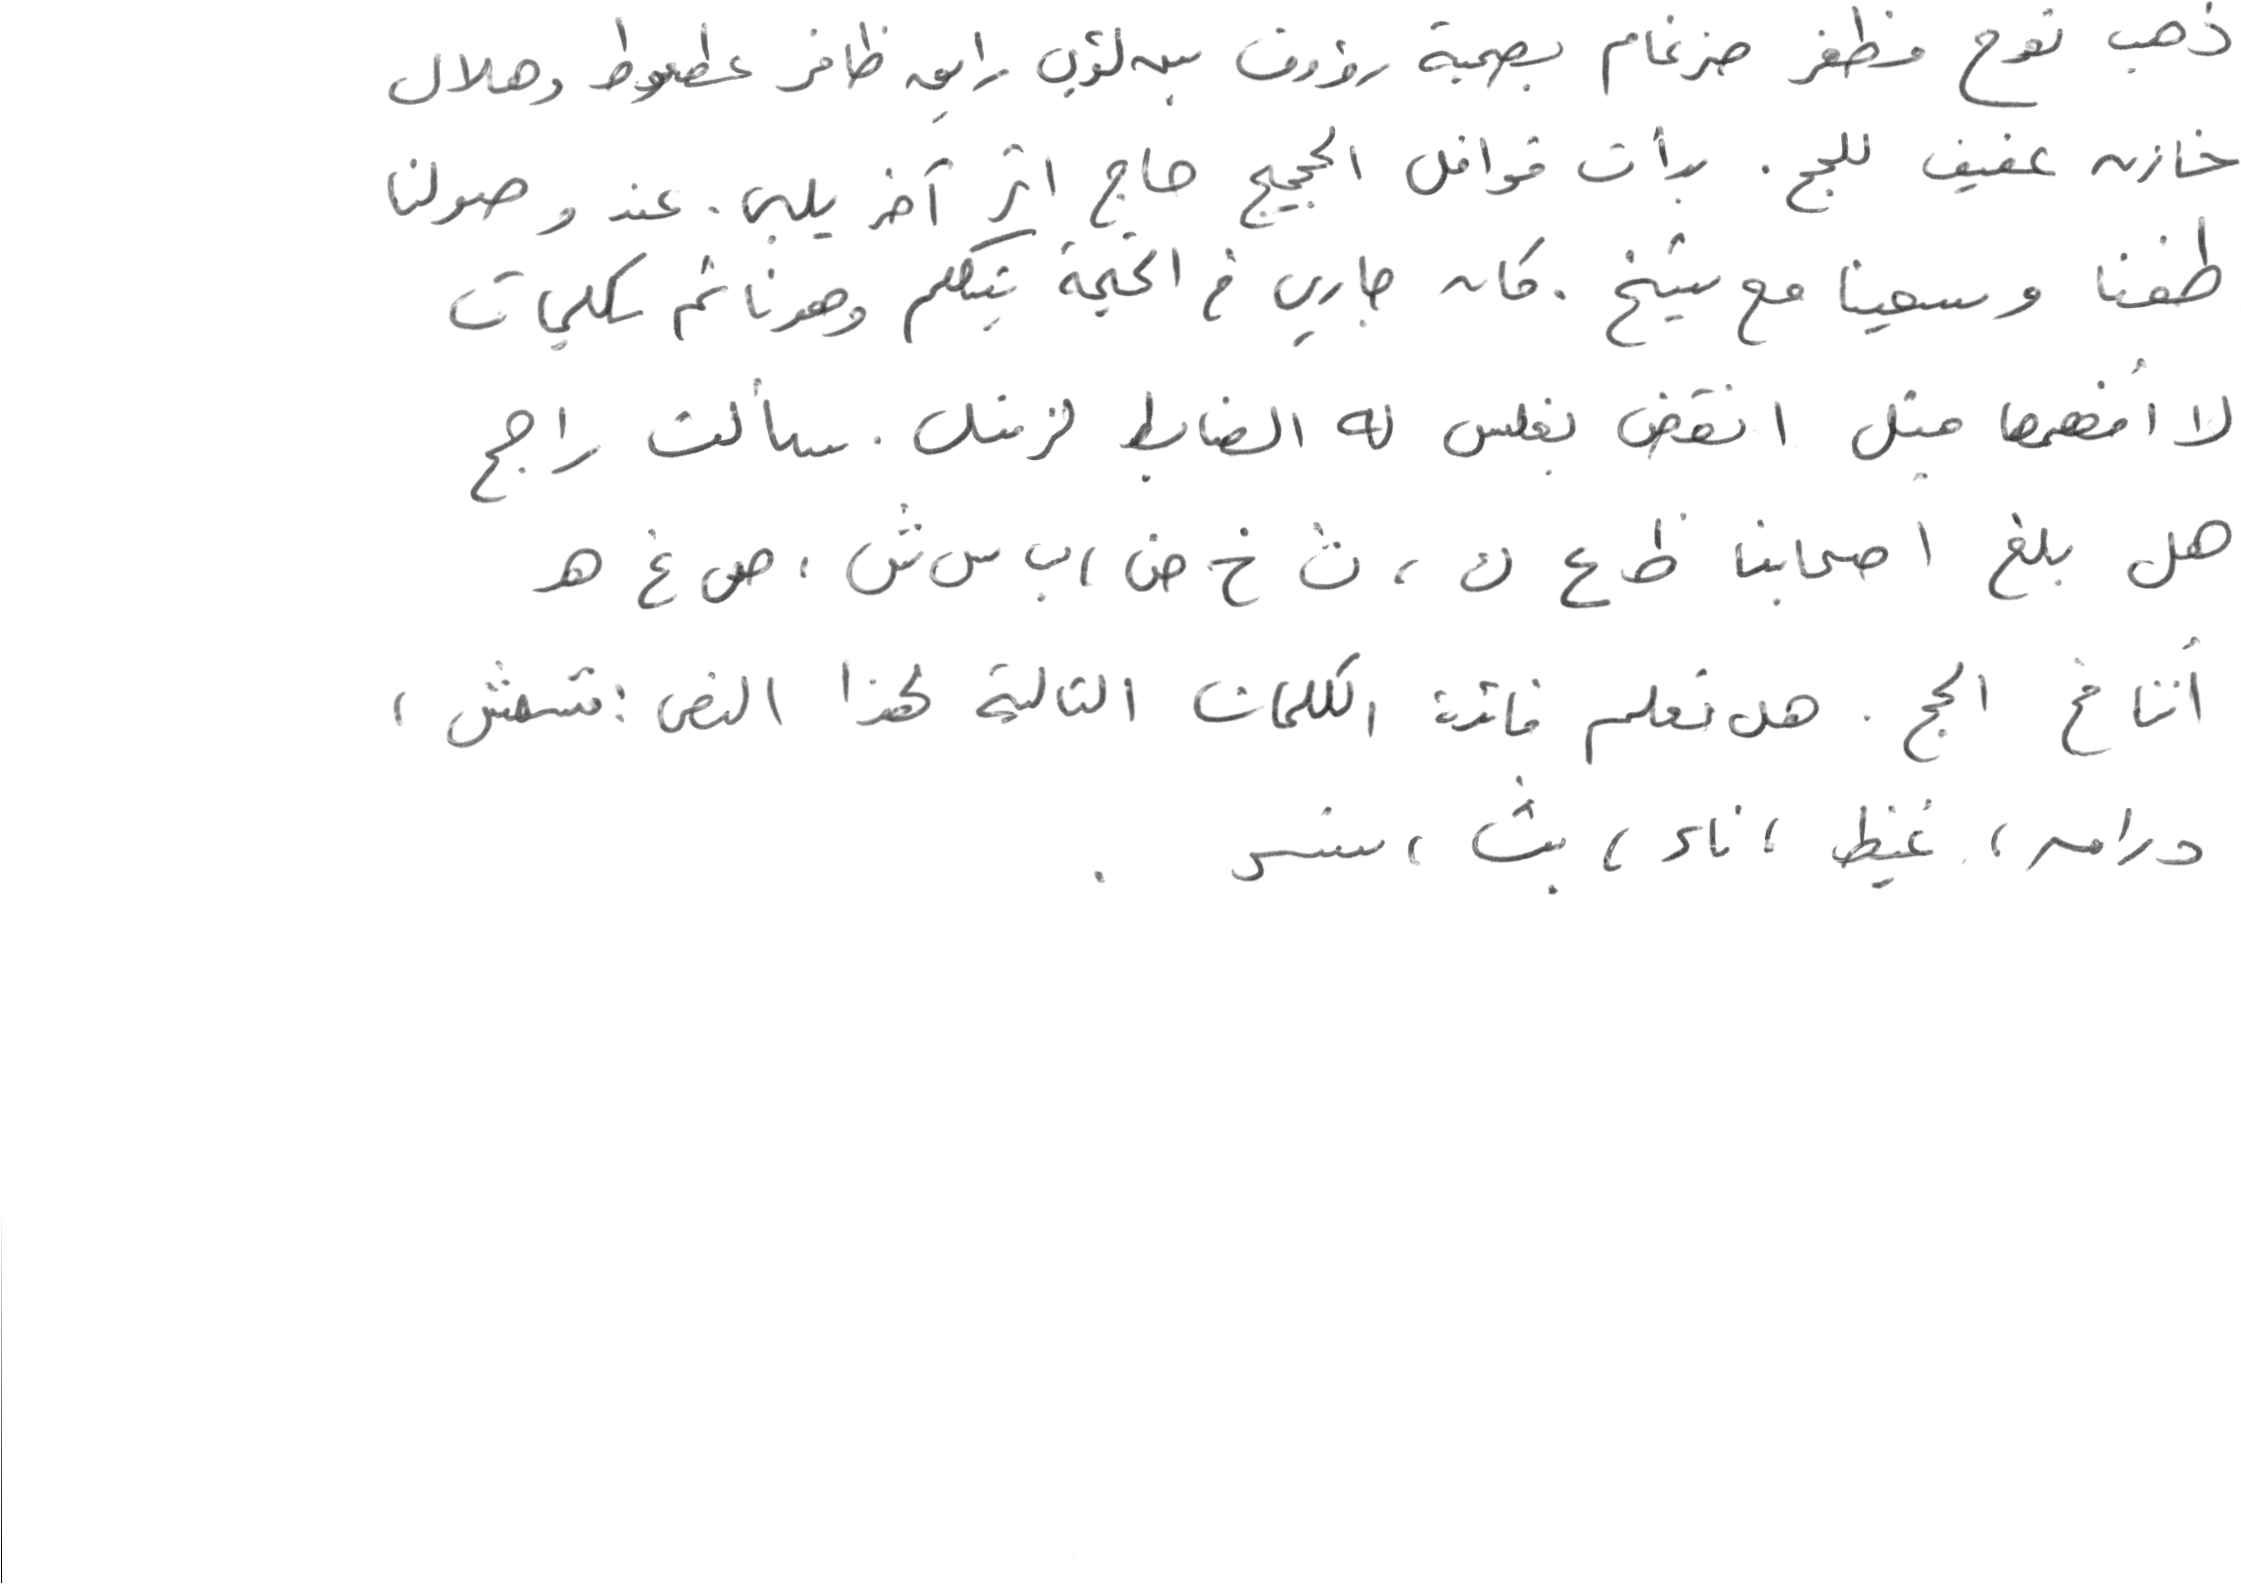 ذهب نوح مظفر ضرغام بصحبة رؤوف بن لؤي رابه ظافر عطعوط وهلال
خازن عفيف للحج. بدأت قوافل الحجيج حاج اثر آخر يلبي. عند وصولنا
طفنا وسعينا مع شيخ. كان جاري في الخيمة يتكلم وهو نائم بكلمات
لا أفهمها مثل انقض بغلس له الضابط لزمتك. سألت راجح
هل بلغ أصحابنا ظ ع ن، ث خ ض، ب س ش، ص غ ه
أنناخ الحج. هل تعلم فائدة الكلمات التالية لهذا النص: تشمش،
درامن، غيظ، ناء، بث، سنس.